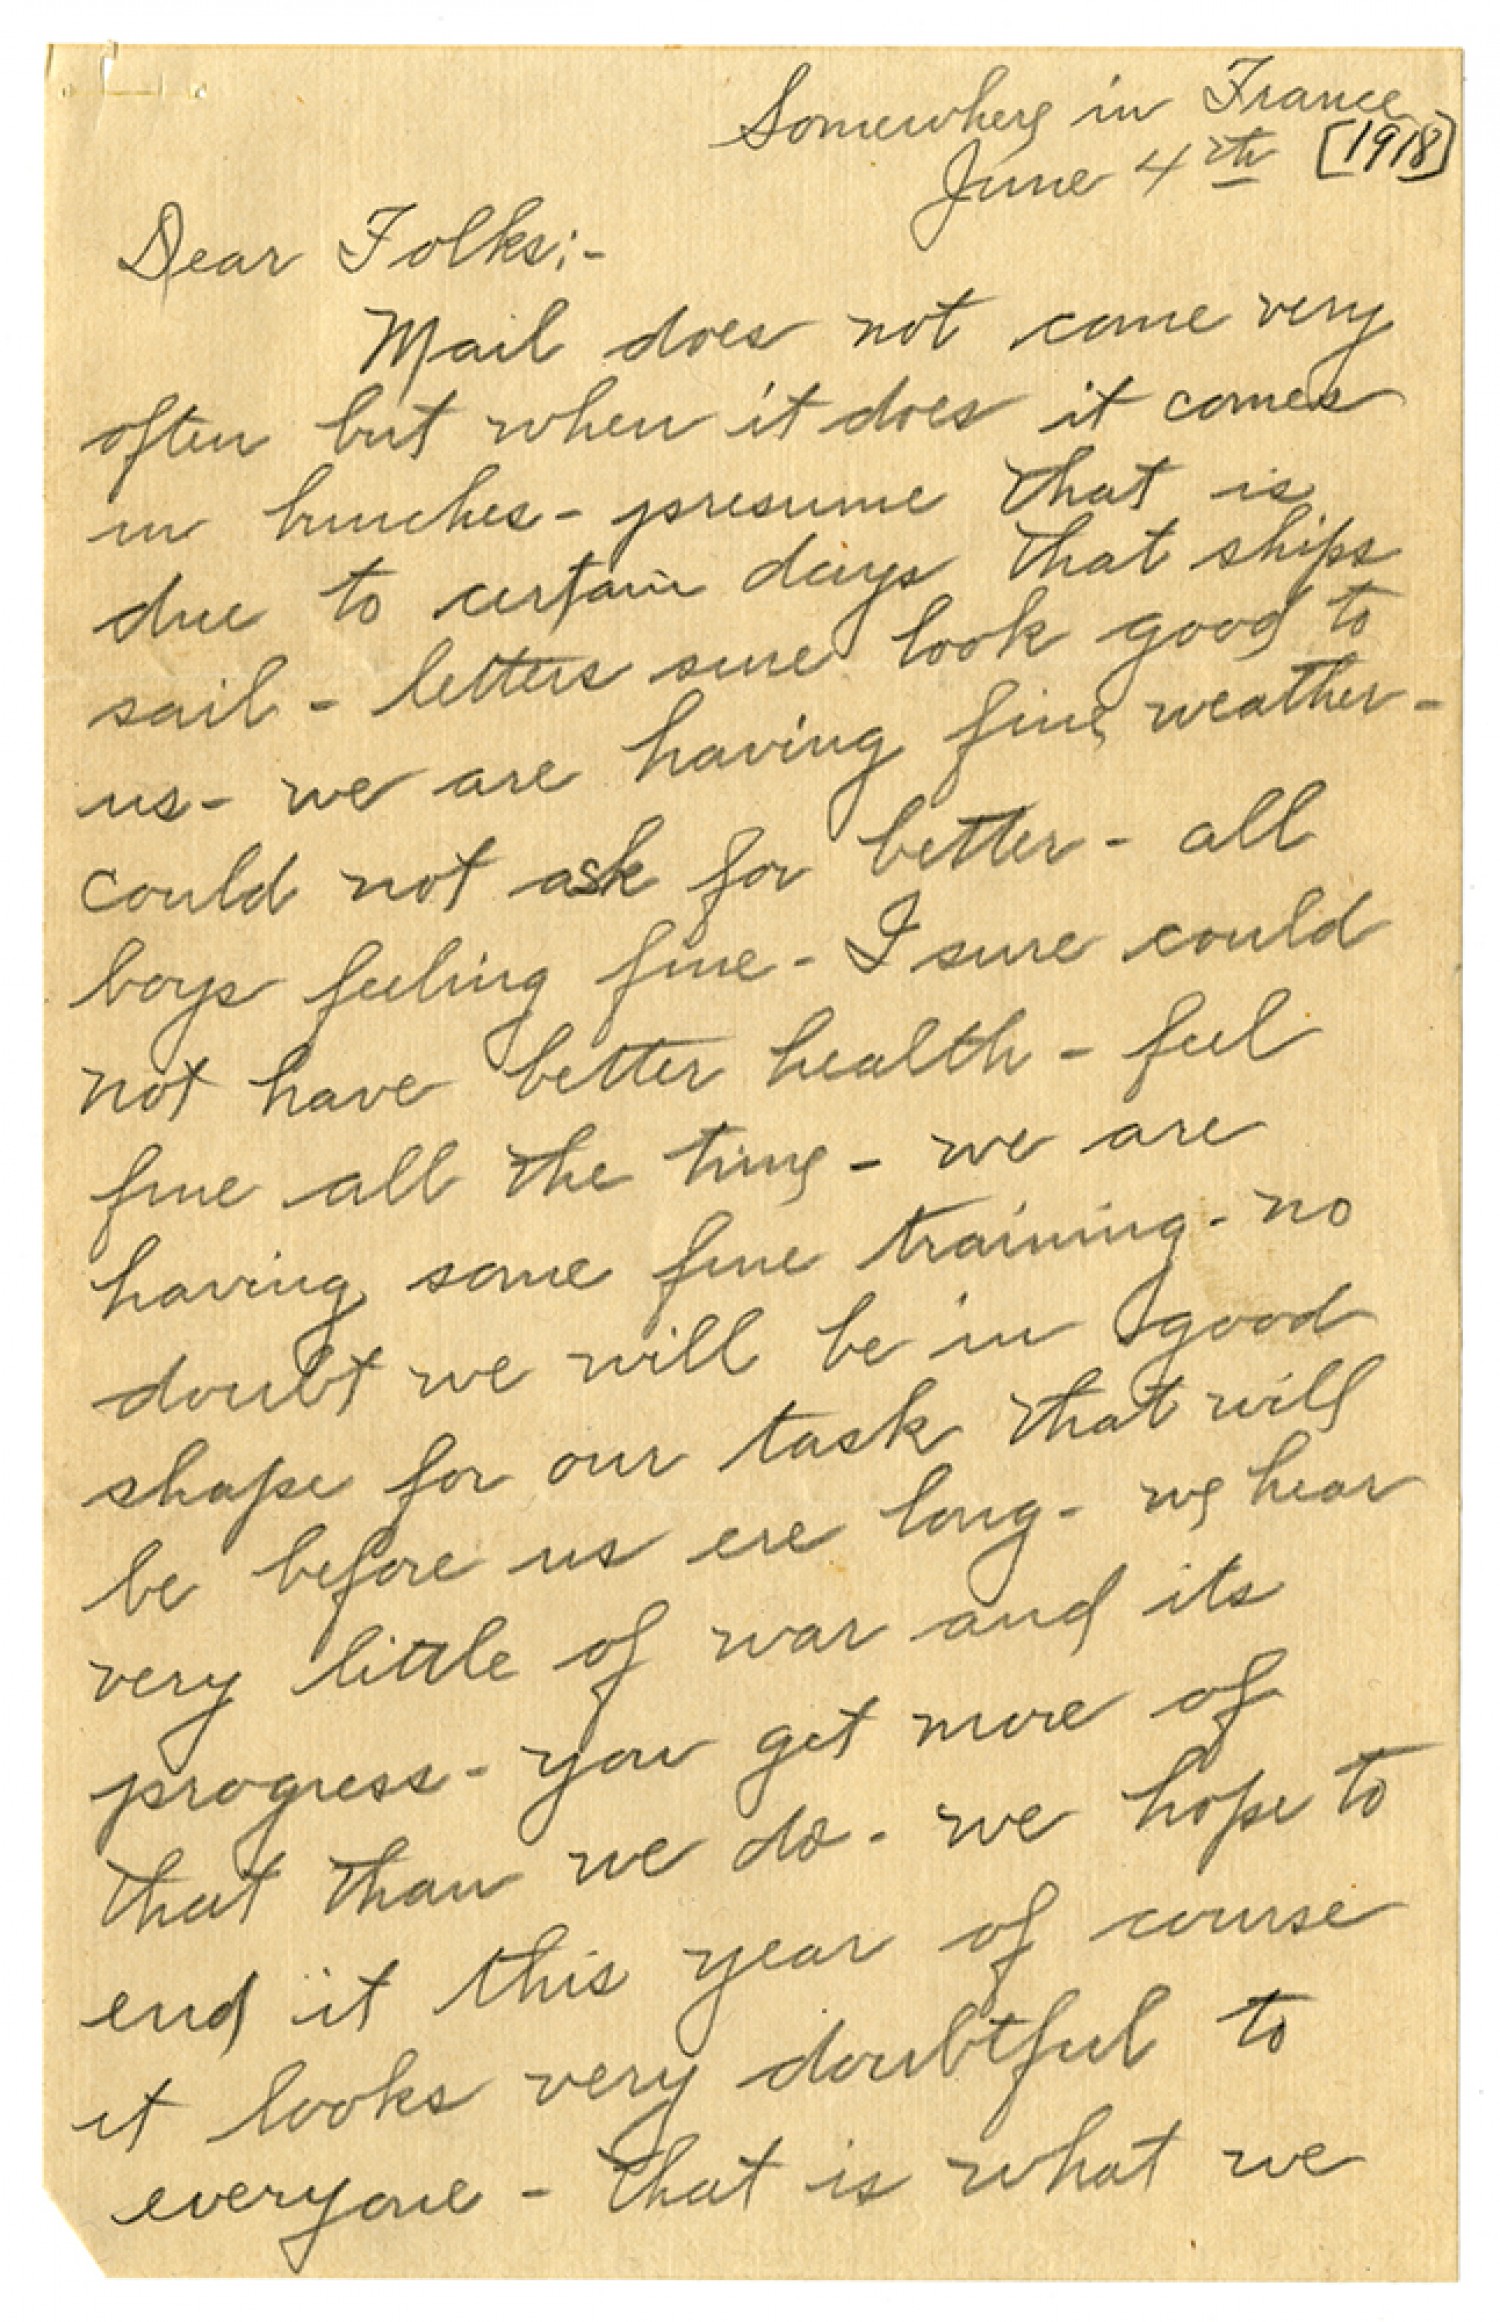 Somewhere in France
June 4th [1918]
Dear Folks:-
Mail does not come very
often but when it does it comes
in bunches - presume that is
due to certain days that ships
sail - letters sure look good to
us - we are having fine weather -
could not ask for better - all
boys feeling fine - I sure could
not have better health - feel
fine all the time - we are
having some fine training - no
doubt we will be in good
shape for our task that will
be before us ere long - we hear
very little of war and its
progress - you get more of
that than we do - we hope to
end it this year of course
it looks very doubtful to
everyone - that is what we